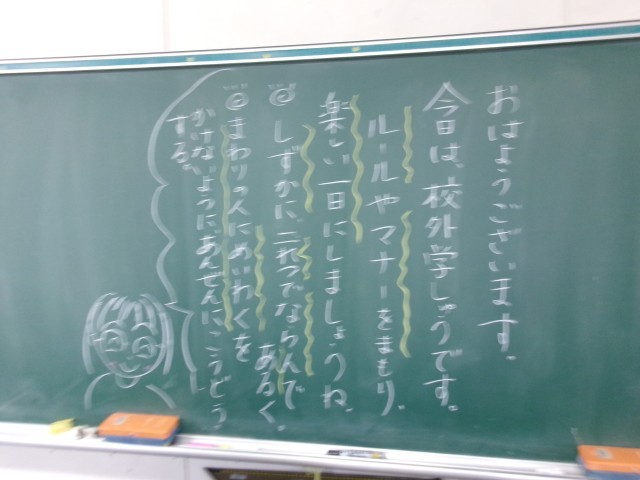 おはようございます。
今日は、校外学しゅうです。
ルールやマナーをまもり、
楽しい一日にしましょうね。
◎しずかに、二れつでならんで
あるく。
◎まわりの人にめいわくを
かけないように、あんぜんにこうどう
する。